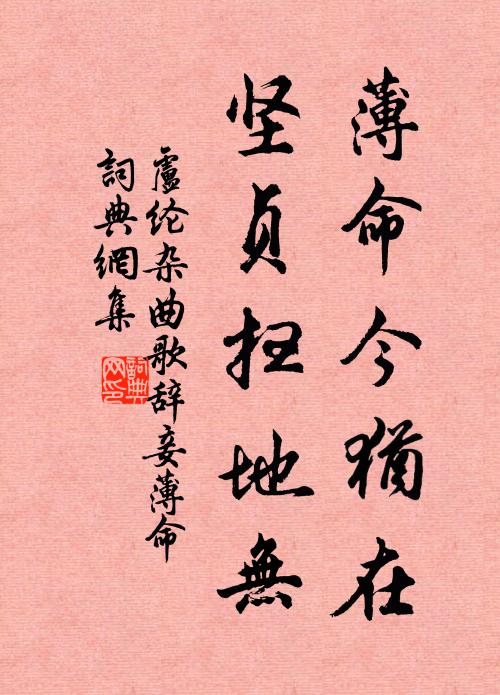 薄命今猶在
坚贞扫地無
盧纶杂曲歌辞妾薄命
詞典網集
詞典网印